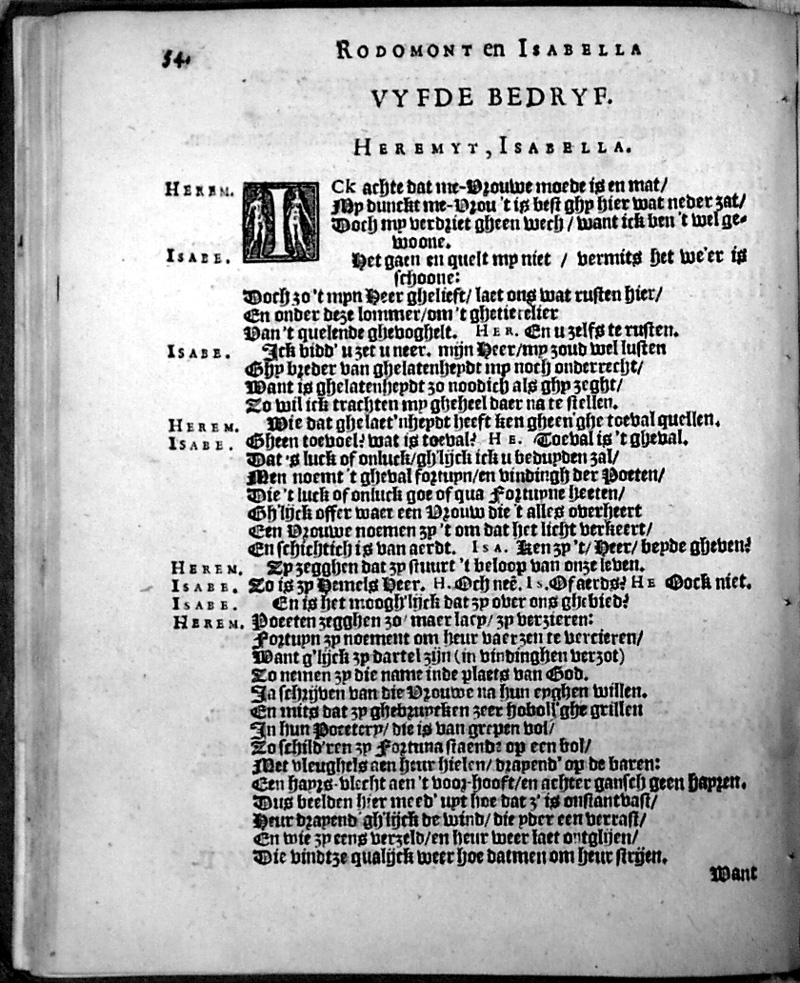 54.
RODOMONT en ISABELLA
VYFDE BEDRYF.
HEREMYT, ISABELLA.
HEREM. ICk achte dat me-Vrouwe moede is en mat/
My dunckt me-Vrou 't is best ghy hier wat neder zat/
Doch my verdriet gheen wech / want ick ben 't wel ge-
woone.
ISABE. Het gaen en quelt my niet / vermits het we'er is
schoone:
Doch zo 't mijn Heer ghelieft/ laet ons wat rusten hier/
En onder deze lommer/om 't ghetierelier
Van 't quelende ghevoghelt. HER. En u zelfs te rusten.
ISABE. Ick bidd' u zet u neer. mijn Heer/my zoud wel lusten
Ghy breder van ghelatenheydt my noch onderrecht/
Want is ghelatenheydt zo noodich als ghy zeght/
Zo wil ick trachten my gheheel daer na te stellen.
HEREM. Wie dat ghelaet'nheydt heeft ken gheen'ghe toeval quellen.
ISABE. Gheen toevoel? wat is toeval? HE. Toeval is 't gheval.
Dat 's luck of onluck/gh'lijck ick u beduyden zal/
Men noemt 't gheval fortuyn/en vindingh der Poeten/
Die 't luck of onluck goe of qua Fortuyne heeten/
Gh'lijck offer waer een Vrouw die 't alles overheert
Een Vrouwe noemen zy 't om dat het licht verkeert/
En schichtich is van aerdt. ISA. Ken zy 't/ Heer/ beyde gheven?
HEREM. Zy zegghen dat zy stuurt 't beloop van onze leven.
ISABE. Zo is zy Hemels Heer. H. Och neẽ. IS. Of aerds? HE Oock niet.
ISABE. En is het moogh'lijck dat zy over ons ghebied?
HEREM. Poeeten zegghen zo/ maer lacy/ zy verzieren:
Fortuyn zy noement om heur vaerzen te vercieren/
Want g'lijck zy dartel zijn (in vindinghen verzot)
Zo nemen zy die name inde plaets van God.
Ja schrijven van die Vrouwe na hun eyghen willen.
En mits dat zy ghebruycken zeer hoboll'ghe grillen
In hun Poeetery/ die is van grepen vol/
Zo schild'ren zy Fortuna staende op een bol/
Met vleughels aen heur hielen/ drayend' op de baren:
Een hayrs-vlecht aen 't voor-hooft/en achter gansch geen hayren.
Dus beelden hier meed' uyt hoe dat z' is onstantvast/
Heur drayend gh'lijck de wind/ die yder een verrast/
En wie zy eens verzeld/en heur weer laet ontglijen/
Die vindtze qualijck weer hoe datmen om heur strijen.
Want